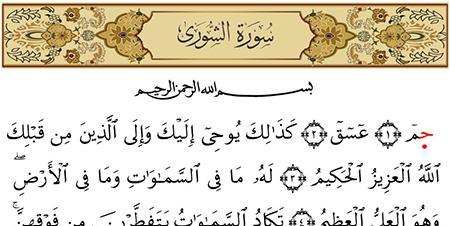 سُورَةُ الشُّورَىٰ
بسم الله الرحمن الرحيم
جمٓ ﴿١﴾ عٓسٓقٓ ﴿٢﴾ كَذَٰلِكَ يُوحِىٓ إِلَيْكَ وَإِلَى ٱلَّذِينَ مِن قَبْلِكَ
ٱللَّهُ ٱلْعَزِيزُ ٱلْحَكِيمُ ﴿٣﴾ لَهُۥ مَا فِى ٱلسَّمَٰوَٰتِ وَمَا فِى ٱلْأَرْضِ ۖ
وَهُوَ ٱلْعَلِىُّ ٱلْعَظِيمُ ﴿٤﴾ تَكَادُ ٱلسَّمَٰوَٰتُ يَتَفَطَّرْنَ مِن فَوْقِهِنَّ ۚ